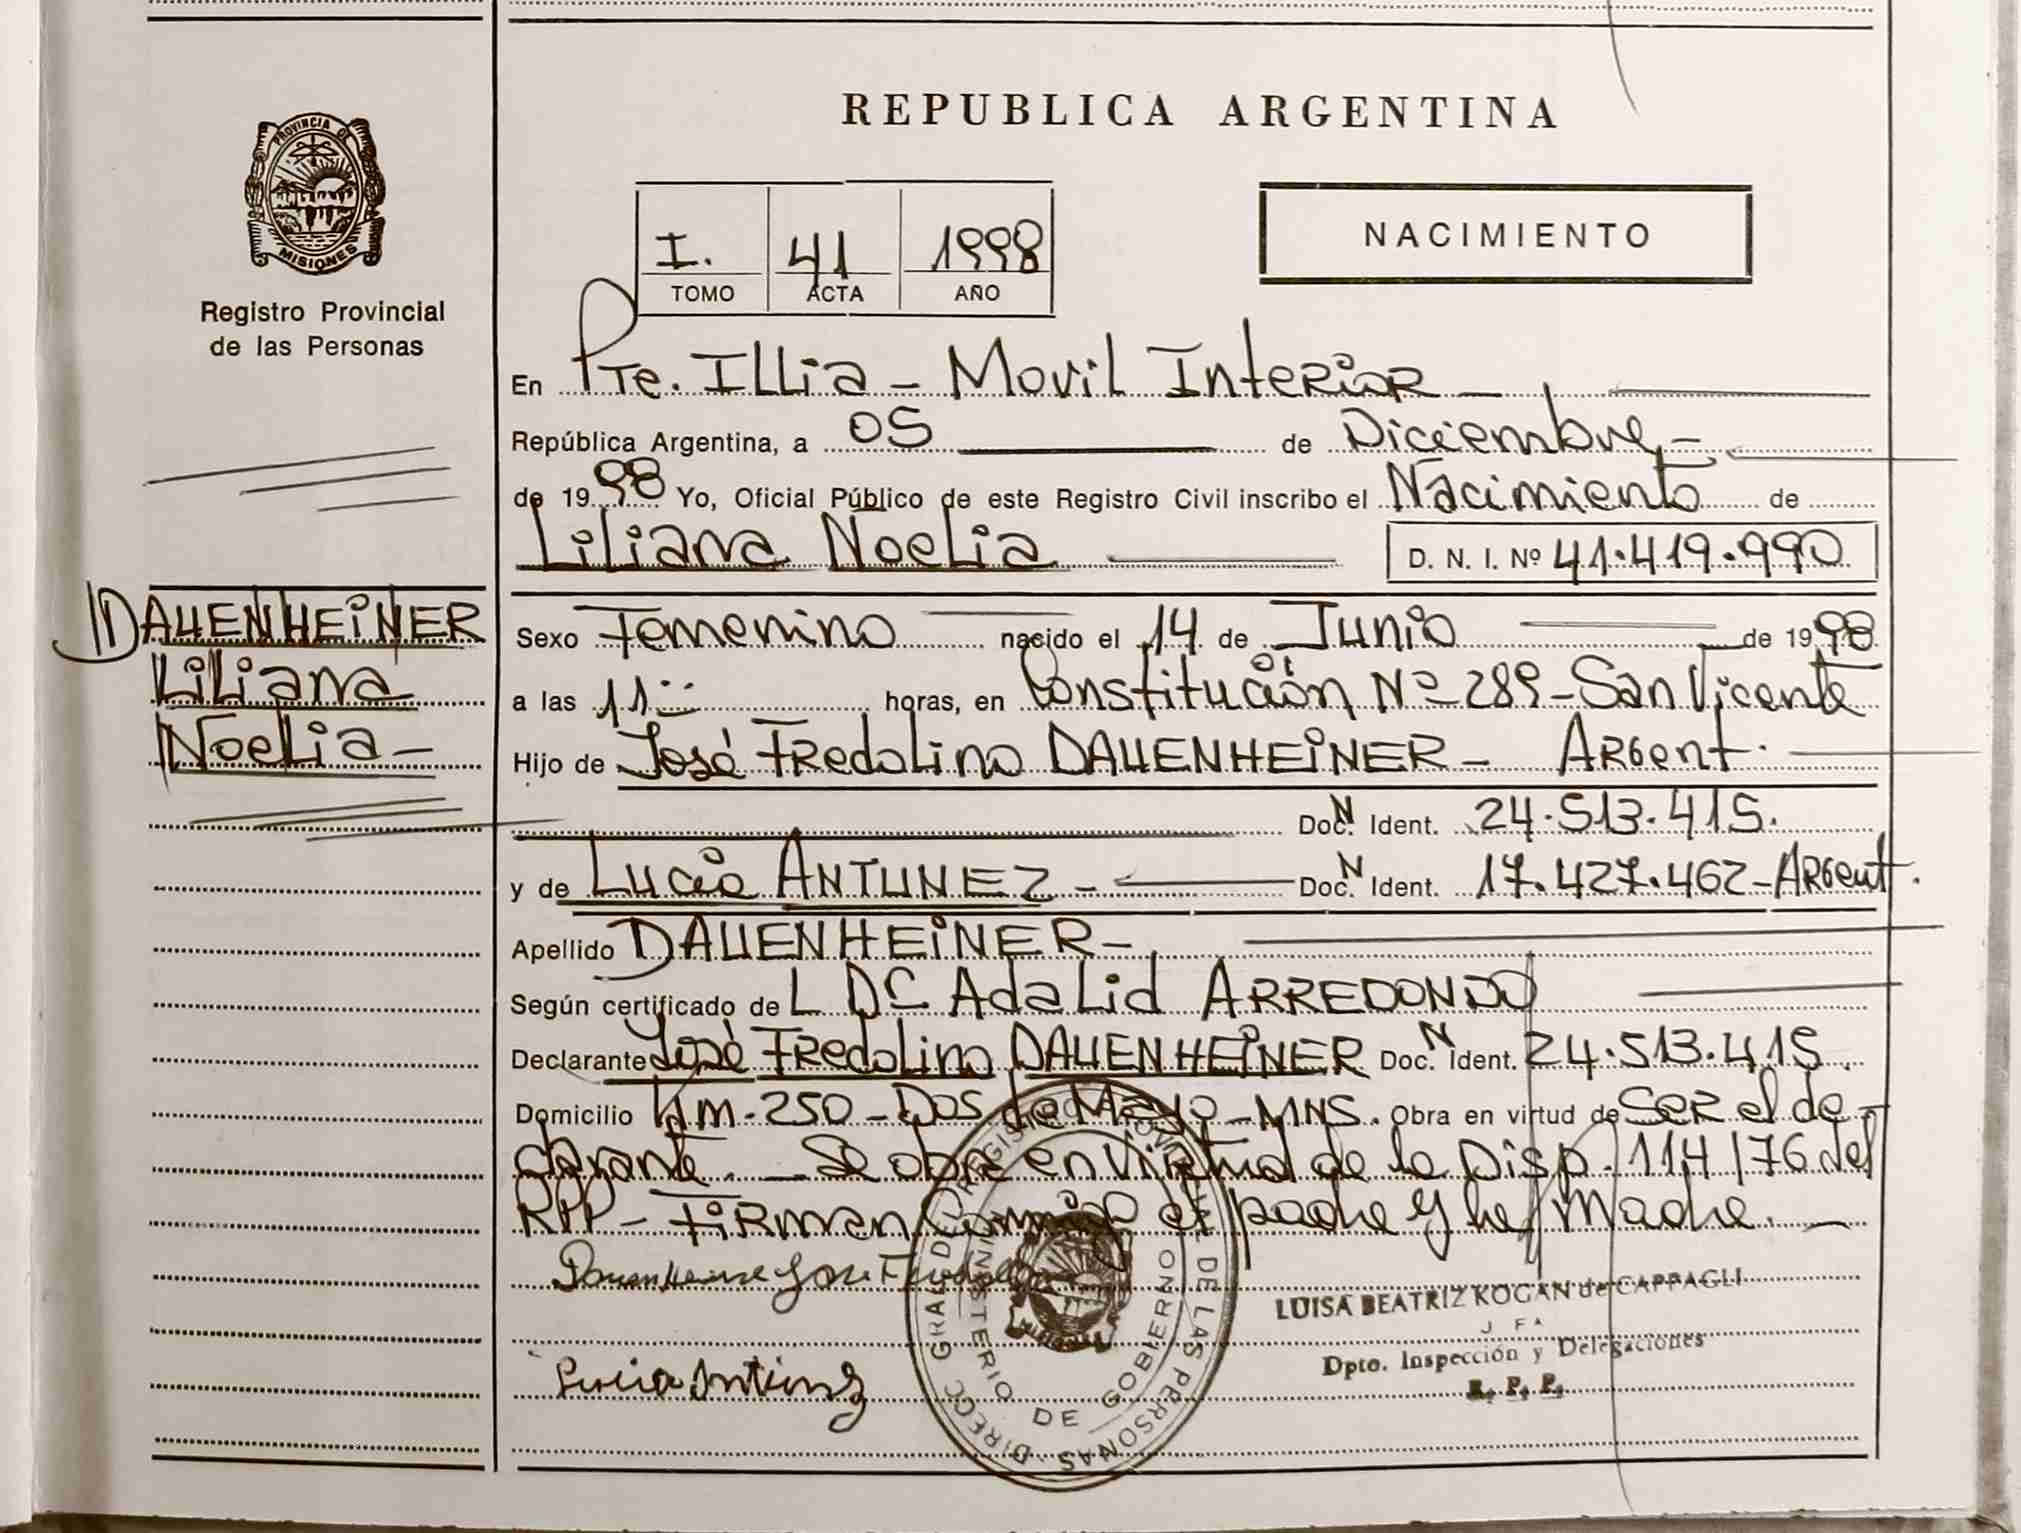 REPUBLICA ARGENTINA
PROVINCIA DE
MISIONES
Registro Provincial
de las Personas
I. 41 1998
TOMO ACTA AÑO
NACIMIENTO
En Pte. ILLia - Movil Interior -
República Argentina, a 05 de Diciembre -
de 1998 Yo, Oficial Público de este Registro Civil inscribo el Nacimiento de
Liliana Noelia D. N. I. Nº 41.419.990
DAUENHEiNER
Liliana
Noelia -
Sexo Femenino nacido el 14 de Junio de 1998
a las 11 horas, en Constitución Nº 289 - San Vicente
Hijo de José Fredolino DAUENHEiNER - Argent.
Doc. N Ident. 24.513.415.
y de Lucia ANTUNEZ - Doc. N Ident. 17.427.462 - Argent.
Apellido DAUENHEiNER -
Según certificado de L DC Adalid ARREDONDO
Declarante José Fredolino DAUENHEiNER Doc. N Ident. 24.513.415
Domicilio Km - 250 - Dos de Mayo - MNS. Obra en virtud de Ser el de-
clarante. - Se obra en virtud de la Disp. 114/76 del
RPP - Firman Conmigo el padre y la Madre. -
Lucia Antunez
DIRECC GRAL DEL REGISTRO PROVINCIAL DE LAS PERSONAS
MINISTERIO DE GOBIERNO
LUISA BEATRIZ KOGAN de CAPPAGLI
J F A
Dpto. Inspección y Delegaciones
R. P. P.